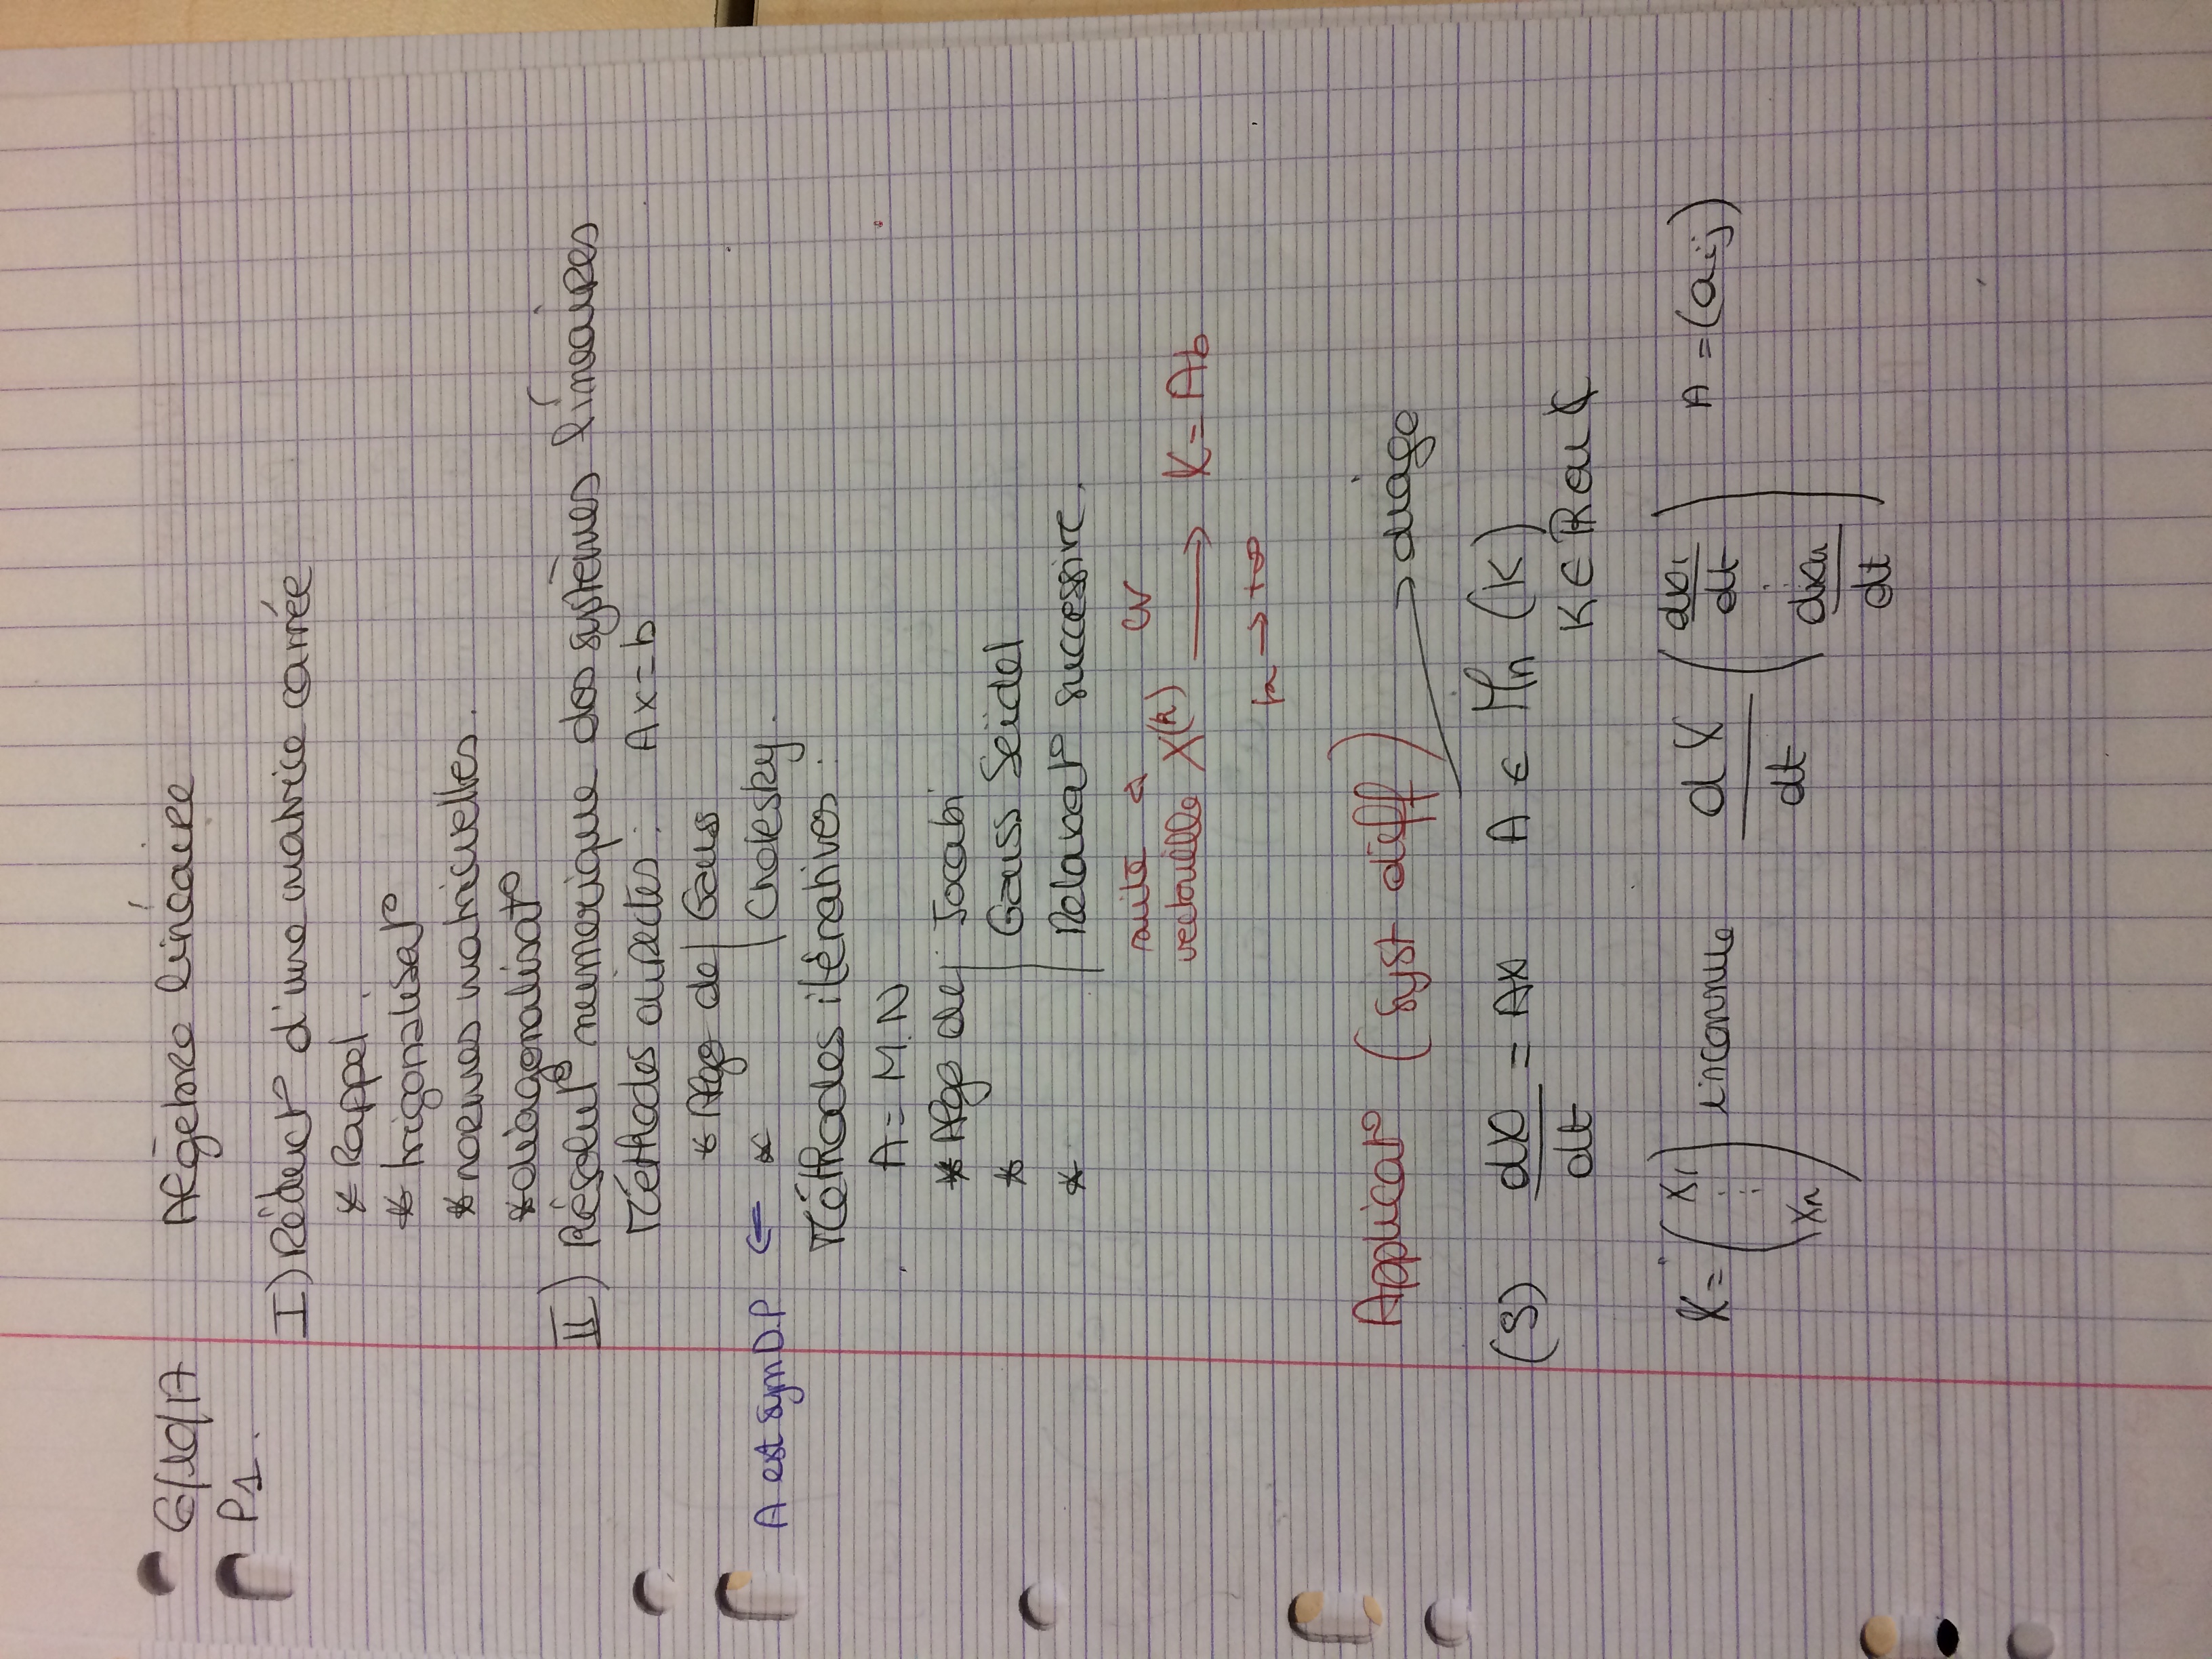 6/10/17 Algèbre linéaire
P1.
I) Réduct° d'une matrice carrée
* Rappel.
* trigonalisat°
* normes matricielles.
* diagonalisat°
II) Résolut° numerique des systèmes linéaires
Méthodes directes : Ax = b
* Algo de | Gauss
A est sym D.P ← * | Cholesky.
Méthodes itératives :
A = M.N
* Algo de | Jocabi
* | Gauss Seidel
* | Relaxat° successive.
suite cv
vectorielle X^(k) → X = Ab
k → +∞
Applicat° (syst diff)
→ diago
(S) dX/dt = AX A ∈ Mn (K)
K ∈ R ou C
X = (x1 : : xn) inconnue dX/dt (dx1/dt : dxn/dt) A = (aij)